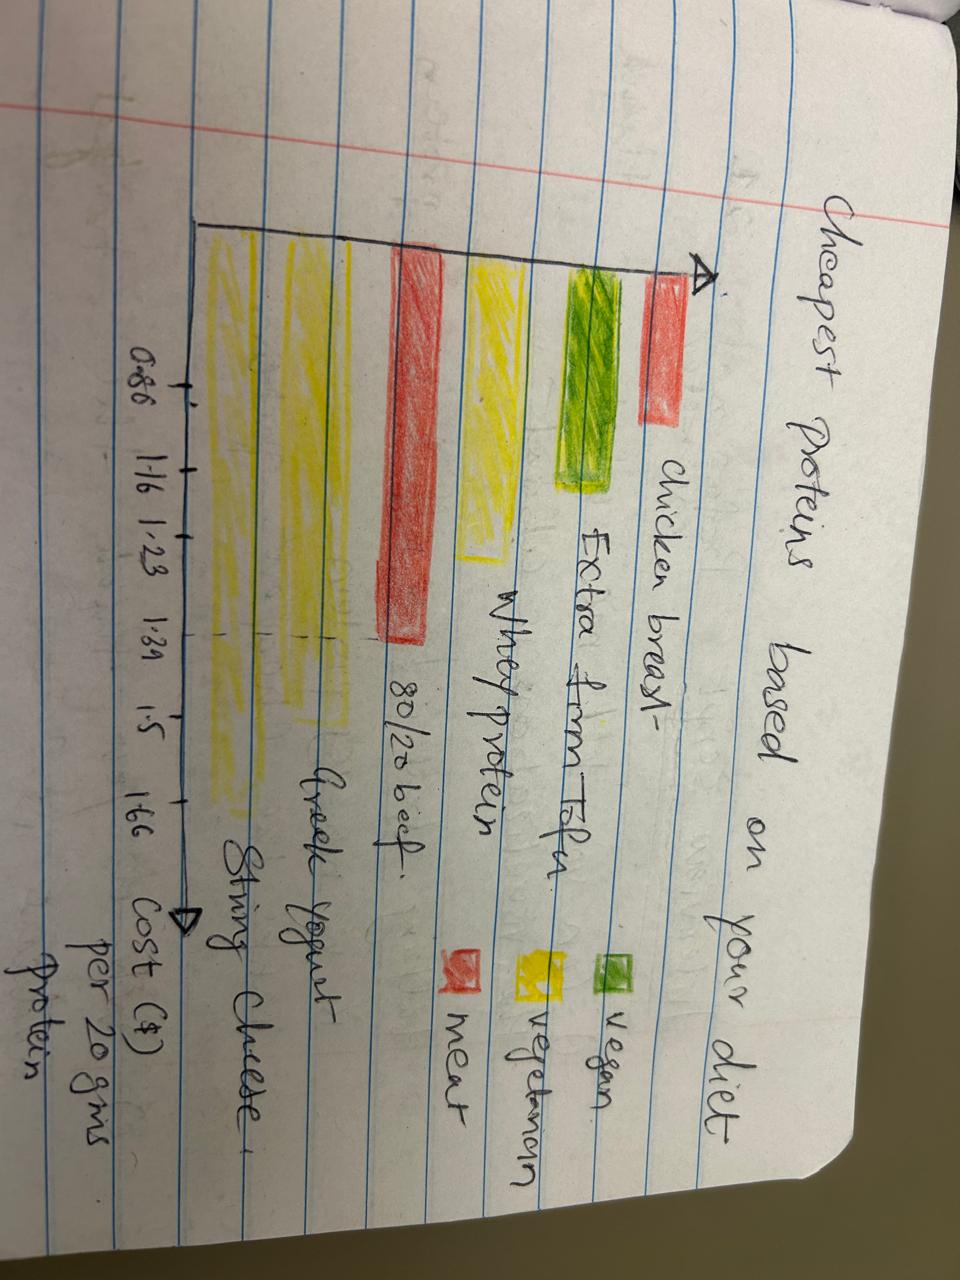 Cheapest proteins based on your diet
Chicken breast
Extra firm Tofu
Whey protein
80/20 beef.
Greek yogurt
String Cheese.
vegan
vegetarian
meat
0.86 1.16 1.23 1.39 1.5 1.66
Cost ($)
per 20 gms
protein